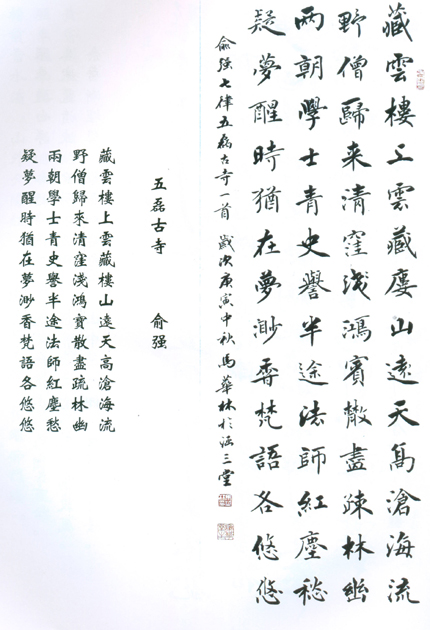 藏雲樓上雲藏廔山遠天高滄海流
野僧歸来清窪浅鴻賓散盡疎林幽
兩朝學士青史譽半途法師紅塵愁
疑夢醒時猶在夢渺香梵語各悠悠
俞强七律五磊古寺一首 歲次庚寅中秋馬華林於法三堂
五磊古寺 俞强
藏雲樓上雲藏樓山遠天高滄海流
野僧歸來清窪淺鴻寶散盡疏林幽
兩朝學士青史譽半途法師紅塵愁
疑夢醒時猶在夢渺香梵語各悠悠